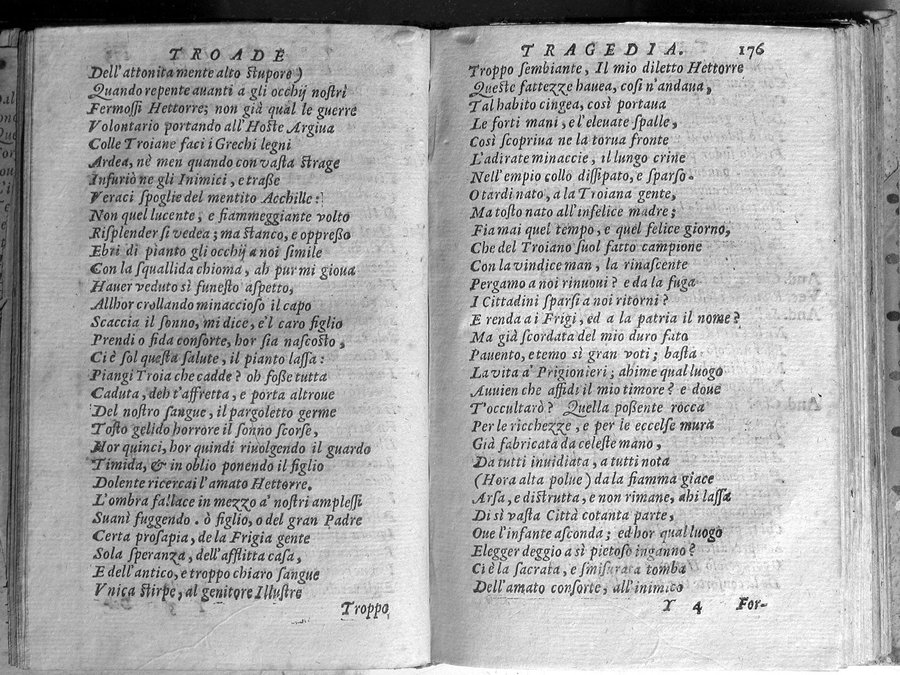 TROADE
Dell'attonita mente alto ſtupore)
Quando repente auanti a gli occhij noſtri
Fermoſſi Hettorre; non già qual le guerre
Volontario portando all'Hoſte Argiua
Colle Troiane faci i Grechi legni
Ardea, nè men quando con vaſta ſtrage
Infuriò ne gli Inimici, e traſſe
Veraci ſpoglie del mentito Acchille:
Non quel lucente, e fiammeggiante volto
Riſplender ſi vedea; ma ſtanco, e oppreſſo
Ebri di pianto gli occhij a noi ſimile
Con la ſquallida chioma, ah pur mi gioua
Hauer veduto sì funeſto aſpetto,
Allhor crollando minaccioſo il capo
Scaccia il ſonno, mi dice, e'l caro figlio
Prendi o fida conſorte, hor ſia naſcoſto,
Ci è ſol queſta ſalute, il pianto laſſa:
Piangi Troia che cadde? oh foſſe tutta
Caduta, deh t'affretta, e porta altroue
Del noſtro ſangue, il pargoletto germe
Toſto gelido horrore il ſonno ſcorſe,
Hor quinci, hor quindi riuolgendo il guardo
Timida, & in oblio ponendo il figlio
Dolente ricercai l'amato Hettorre.
L'ombra fallace in mezzo a' noſtri ampleſſi
Suanì fuggendo. ò figlio, o del gran Padre
Certa proſapia, de la Frigia gente
Sola ſperanza, dell'afflitta caſa,
E dell'antico, e troppo chiaro ſangue
Vnica ſtirpe, al genitore Illuſtre
Troppo
TRAGEDIA. 176
Troppo ſembiante, Il mio diletto Hettorre
Queſte fattezze hauea, coſi n'andaua,
Tal habito cingea, così portaua
Le forti mani, e l'eleuate ſpalle,
Così ſcopriua ne la torua fronte
L'adirate minaccie, il lungo crine
Nell'empio collo diſſipato, e ſparſo.
O tardi nato, a la Troiana gente,
Ma toſto nato all'infelice madre;
Fia mai quel tempo, e quel felice giorno,
Che del Troiano ſuol fatto campione
Con la vindice man, la rinaſcente
Pergamo a noi rinuoui? e da la fuga
I Cittadini ſparſi a noi ritorni?
E renda a i Frigi, ed a la patria il nome?
Ma già ſcordata del mio duro fato
Pauento, e temo sì gran voti; baſta
La vita a' Prigionieri; ahime qual luogo
Auuien che affidi il mio timore? e doue
T'occultarò? Quella poſſente rocca
Per le ricchezze, e per le eccelſe mura
Già fabricata da celeſte mano,
Da tutti inuidiata, a tutti nota
(Hora alta polue) da la fiamma giace
Arſa, e diſtrutta, e non rimane, ahi laſſa
Di sì vaſta Città cotanta parte,
Oue l'infante aſconda; ed hor qual luogo
Elegger deggio a sì pietoſo inganno?
Ci è la ſacrata, e ſmiſurata tomba
Dell'amato conſorte, all'inimico
Y 4 For-